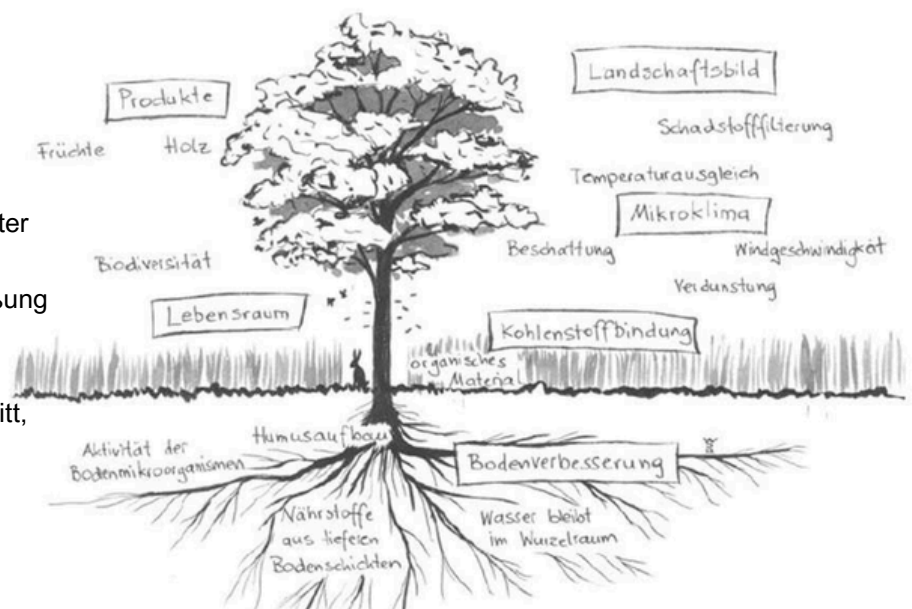 Produkte
Früchte
Holz
Landschaftsbild
Schadstofffilterung
Temperaturausgleich
Mikroklima
Beschattung
Windgeschwindigkeit
Verdunstung
ter
Biodiversität
ßung
Lebensraum
Kohlenstoffbindung
organisches
Material
itt,
Aktivität der
Bodenmikroorganismen
Humusaufbau
Bodenverbesserung
Nährstoffe
aus tieferen
Bodenschichten
Wasser bleibt
im Wurzelraum